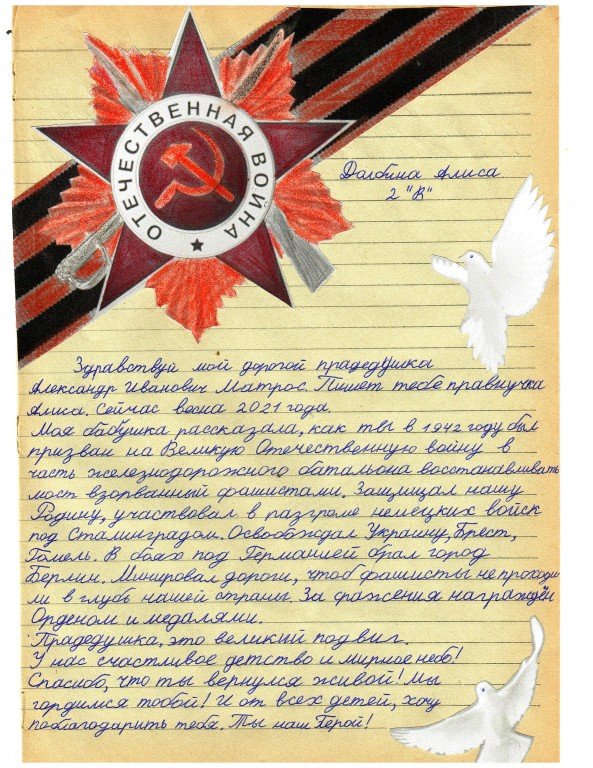 ОТЕЧЕСТВЕННАЯ ВОЙНА
Долбина Алиса
2 "В"
Здравствуй мой дорогой прадедушка
Александр Иванович Матрос. Пишет тебе правнучка
Алиса. Сейчас весна 2021 года.
Моя бабушка рассказала, как ты в 1942 году был
призван на Великую Отечественную войну в
часть железнодорожного батальона восстанавливать
мост взорванный фашистами. Защищал нашу
Родину, участвовал в разгроме немецких войск
под Сталинградом. Освобождал Украину, Брест,
Гомель. В боях под Германией брал город
Берлин. Минировал дороги, чтоб фашисты не проходи-
ли в глубь нашей страны. За сражения награждён
Орденом и медалями.
Прадедушка, это великий подвиг.
У нас счастливое детство и мирное небо!
Спасибо, что ты вернулся живой! Мы
гордимся тобой! И от всех детей, хочу
поблагодарить тебя. Ты наш Герой!